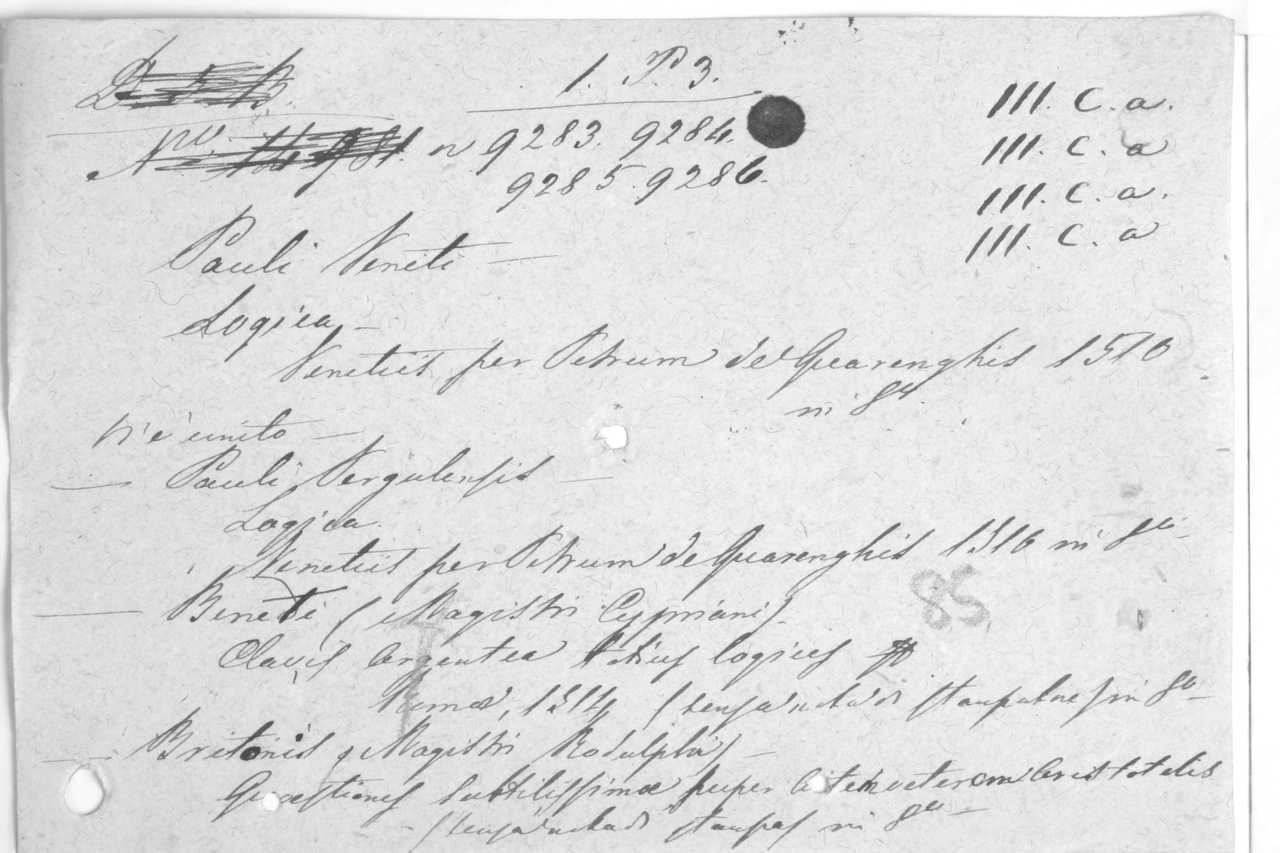 1. P. 3.
n 9283. 9284.
9285. 9286.
III. C. a.
III. C. a
III. C. a.
III. C. a
Pauli Veneti —
Logica, —
Venetiis per Petrum de Quarenghis 1510
in 8º.
Vi è unito —
— Pauli Pergulensis —
Logica.
Venetiis per Petrum de Quarenghis 1516 in 8º —
— Beneti (Magistri Cypriani).
Clavis argentea totius logices
Romæ, 1514 (senza nota di stampatore) in 8º —
— Britonis (Magistri Rodulphi) —
Quæstiones subtilissimæ super artem veterem Aristotelis
— (senza nota di stampa) in 8º —
85